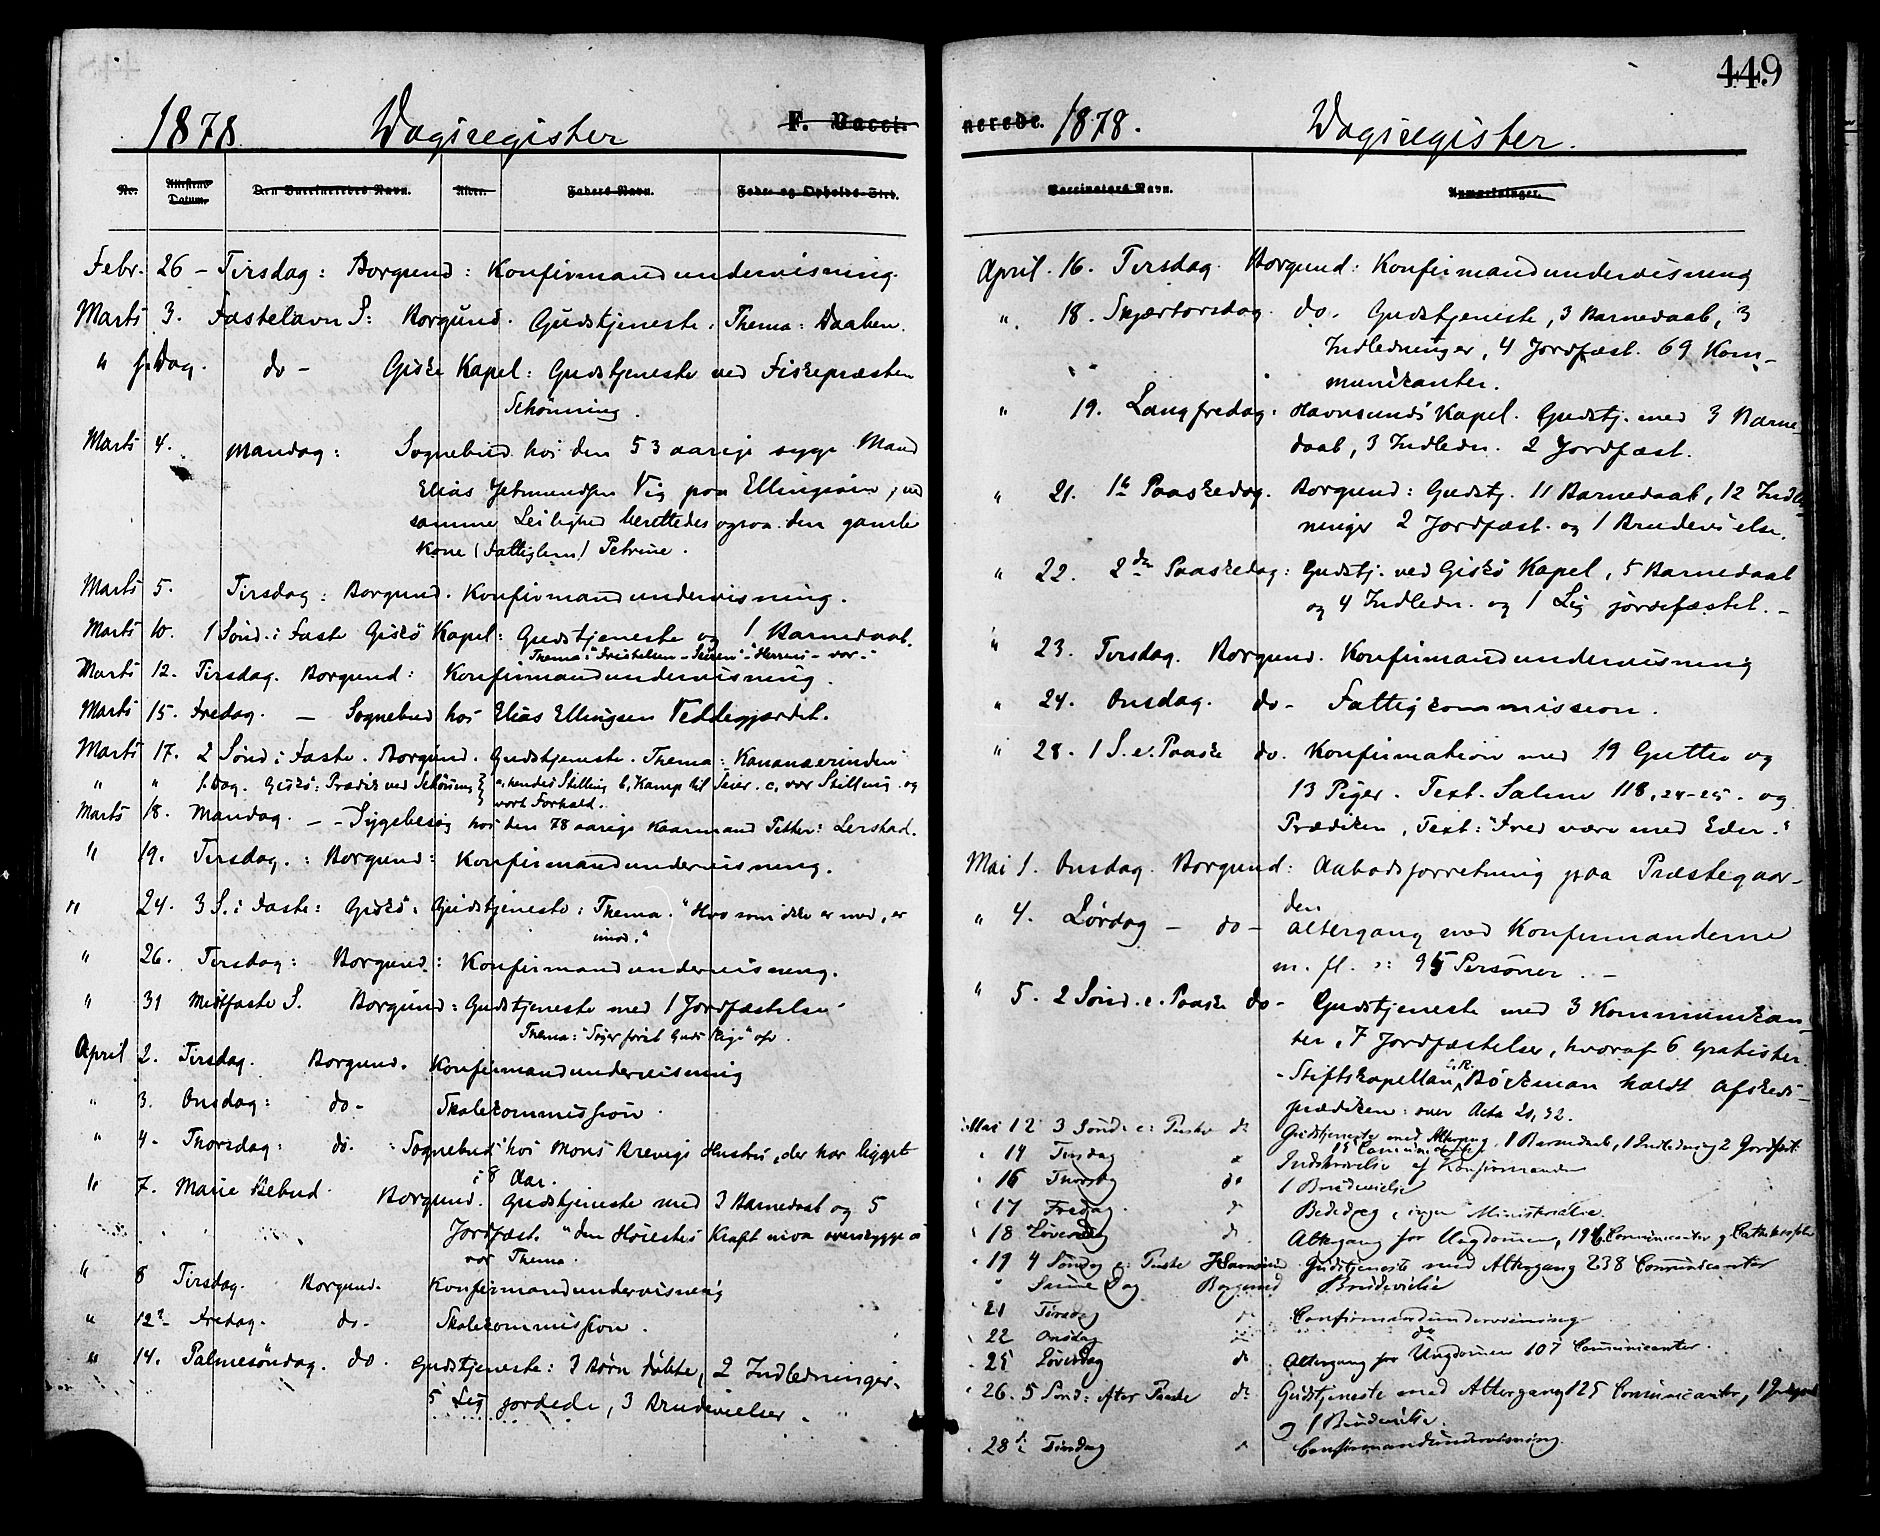 1878. Dagsregister F. Vacci-
No. Attestens Datum. Den Vaccineredes Navn. Alder. Faders Navn. Føde- og Opholds-Sted.
Febr. 26 - Tirsdag: Borgund: Konfirmandundervisning.
Marts 3. Fastelavn S: Borgund. Gudstjeneste. Thema: Daaben.
" s. Dag. do - Giske Kapel: Gudstjeneste ved Fiskepræsten
Schønning.
Marts 4. Mandag: Sognebud hos den 53 aarige syge Mand
Elias Jetmundsen Vig paa Ellingsøen; ved
samme Leilighed berettedes ogsaa den gamle
Kone (Fattiglem) Petrine.
Marts 5. Tirsdag: Borgund. Konfirmandundervisning.
Marts 10. 1 Sønd. i Faste Giskö Kapel: Gudstjeneste og 1 Barnedaab.
Thema: "Fristelsen - Seiren" - Herrens - vor.
Marts 12. Tirsdag. Borgund: Konfirmandundervisning.
Marts 15. Fredag. - Sognebud hos Elias Ellingsen Veddegjærdet.
Marts 17. 2 Sønd i Faste. Borgund. Gudstjeneste. Thema: Kananæerinden
" " s. Dag. Giskö: Prædik ved Schønning a, hendes Stilling b, Kamp til Seier. c, vor Stilling og
vort Forhold.
Marts 18. Mandag. - - Sygebesøg hos den 78 aarige Kaarmand Petter: Lerstad.
" 19. Tirsdag. : Borgund: Konfirmandundervisning.
" 24. 3 S. i Faste: Giskö: Gudstjeneste: Thema. "Hvo som ikke er med, er
imod."
" 26. Tirsdag: Borgund: Konfirmandundervisning.
" 31 Midtfaste S. Borgund: Gudstjeneste med 1 Jordfæstelse
Thema: "Søger først Guds Rige" osv.
April 2. Tirsdag. Borgund. Konfirmandundervisning
" 3. Onsdag: do - Skolekommission.
" 4. Thorsdag: do. Sognebud hos Mons Brevigs Hustru, der har ligget
i 8 Aar.
" 7. Marie Bebud. Borgund. Gudstjeneste med 3 Barnedaab og 5
Jordfæst. "den Høiestes Kraft
var Thema.
" 8 Tirsdag. Borgund. Konfirmandundervisning
" 12 Fredag. do - Skolekommission.
" 14. Palmesöndag. do. Gudstjeneste: 3 Børn døbte, 2 Indledninger.
5 Lig jordede, 3 Brudevielser.
449
nerede. 1878. Dagsregister.
Vaccinators Navn. Anmærkninger.
April. 16. Tirsdag. Borgund: Konfirmandundervisning
" 18. Skjærtorsdag. do. Gudstjeneste, 3 Barnedaab, 3
Indledninger, 4 Jordfæst. 69 Kom-
munikanter.
" 19. Langfredag: Havnsunds Kapel. Gudstj. med 3 Barne-
daab, 3 Indledn. 2 Jordfæst.
" 21. 1te Paaskedag. Borgund: Gudstj. 11 Barnedaab, 12 Indled-
ninger 2 Jordfæst. og 1 Brudevielse.
" 22. 2den Paaskedag: Gudstj. ved Giskö Kapel, 5 Barnedaab
og 4 Indledn. og 1 Lig jordfæstet. -
" 23. Tirsdag. Borgund. Konfirmandundervisning
" 24. Onsdag. do - Fattigkommission.
" 28. 1 S. e. Paaske do. Konfirmation med 19 Gutter og
13 Piger. Text. Salme 118, 24-25. og
Prædiken, Text: "Fred være med Eder."
Mai 1. Onsdag. Borgund: Aabodsforretning paa Præstegaar-
den
" 4. Lørdag - do - Altergang med Konfirmanderne
m. fl. : 95 Personer. -
" 5. 2 Sönd. e. Paaske do - Gudstjeneste med 3 Kommunikan-
ter, 7 Jordfæstelser, hvoraf 6 Gratister.
- Stiftskapellan Böckman holdt Afskeds-
prædiken: over Acta 20, 32.
Mai 12 3 Sönd: e: Paaske do Gudstjeneste med Altergang. 1 Barnedaab, 1 Indledning 2 Jordfæst.
15 Communicanter
" 14 Tirsdag " Indskrivelse af Konfirmander
" 16 Thorsdag do 1 Brudevielse
" 17 Fredag. " Bededag, ingen Ministrialia.
" 18 Löverdag do. Altergang for Ungdommen, Communicanter og Cathekisation
" 19 4 Söndag e: Paaske Gudstjeneste med Altergang 238 Communicanter
" Samme Dag Borgund Brudevielse
" 21 Tirsdag do Confirmandundervisning
" 22 Onsdag do do
" 25 Löverdag do Altergang for Ungdommen 107 Communicanter.
" 26. 5 Sönd: efter Paaske do Gudstjeneste med Altergang 125 Communicanter,
og 1 Brudevielse.
" 28 Tirsdag " Confirmandundervisning.